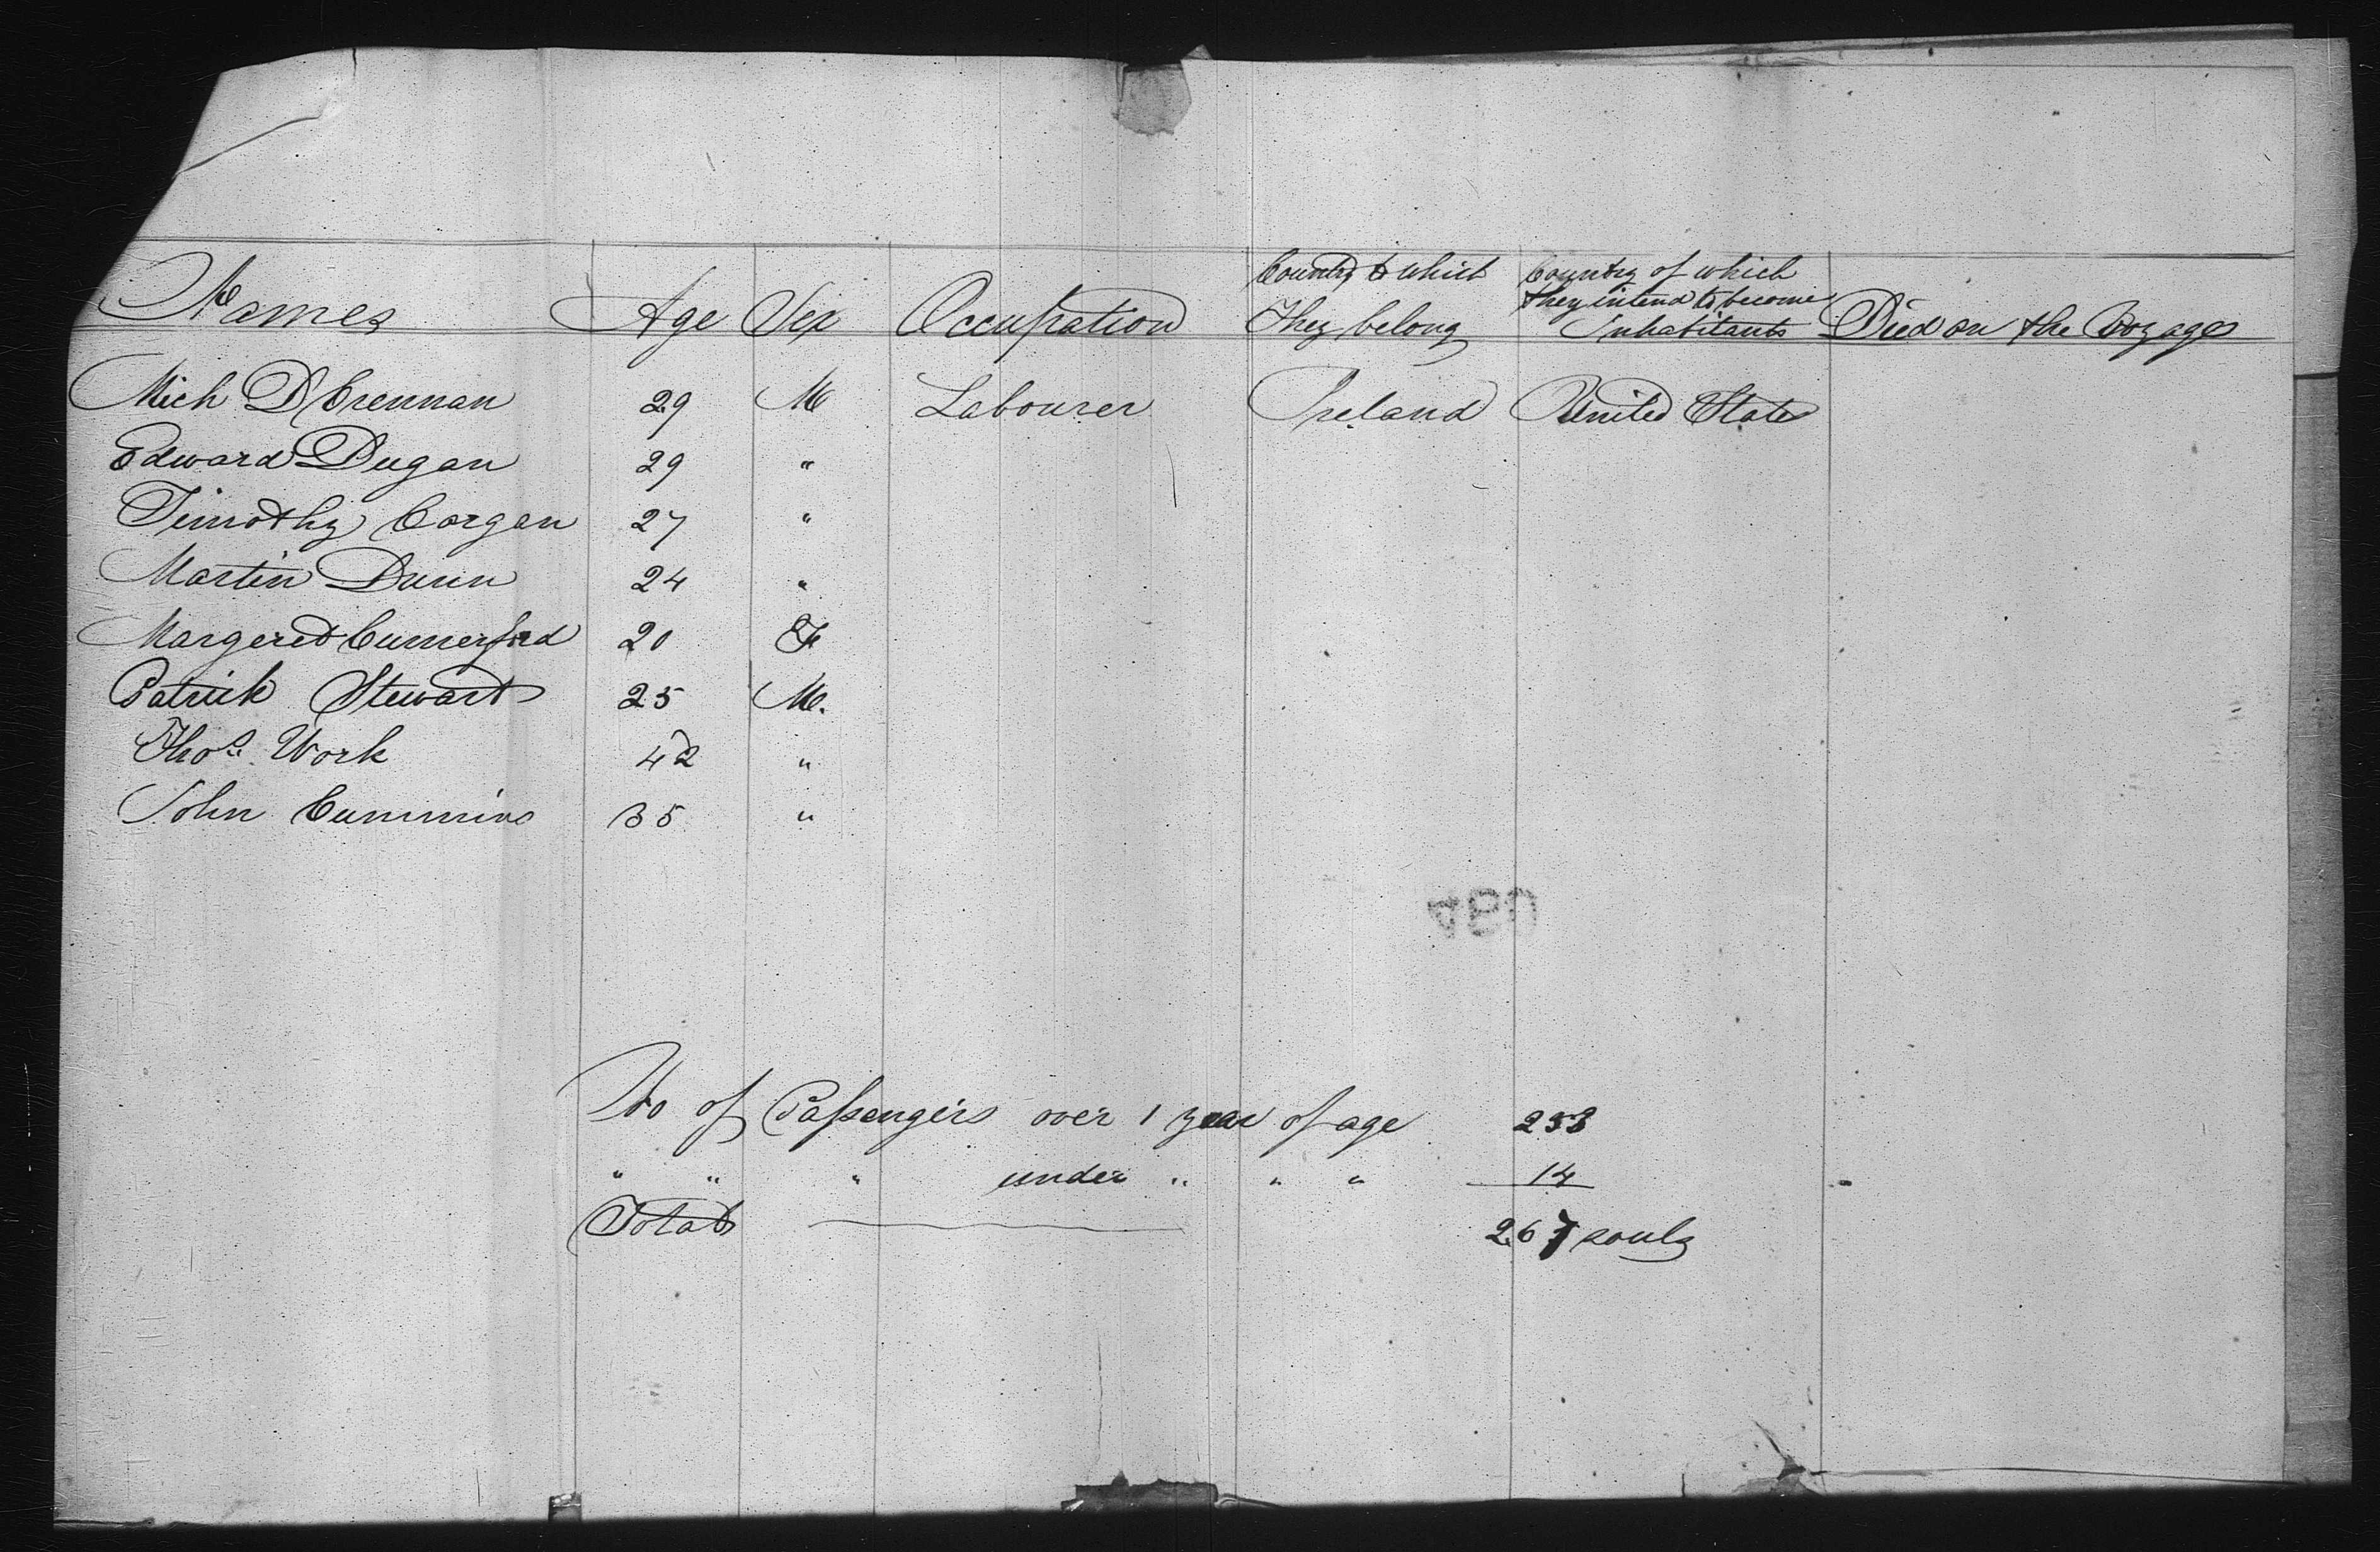 Names Age Sex Occupation Country to which They belong Country of which they intend to become Inhabitants Died on the Voyage
Mich D Brennan 29 M Labourer Ireland United States
Edward Dugan 29 "
Timothy Corgan 27 "
Martin Dunn 24 "
Margered Cumerford 20 F
Patrick Stewart 25 M.
Thos. Work 42 "
John Cummins 35 "
460
No of Passengers over 1 year of age 253
" " " under " " " 14
Total 267 souls